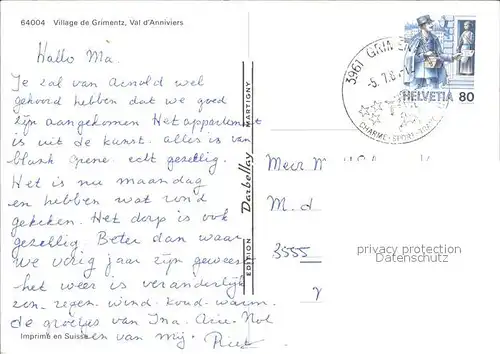 64004 Village de Grimentz, Val d'Anniviers
Hallo Ma.
Je zal van Arnold wel
gehoord hebben dat we goed
zijn aangekomen Het appartement
is uit de kunst. alles is van
blank grene. echt gezellig.
Het is nu maandag
en hebben wat rond
gekeken. Het dorp is ook
gezellig. Beter dan waar
we vorig jaar zijn geweest
het weer is veranderlijk
zon. regen. wind. koud. warm.
de groetjes van Ina. Arie. Nol
en van mij. Piet
Imprimé en Suisse
EDITION Darbellay MARTIGNY
3961 GRIMEN
CHARME - SPORT
HELVETIA 80
Meer
M. d
3555
privacy protection
Datenschutz